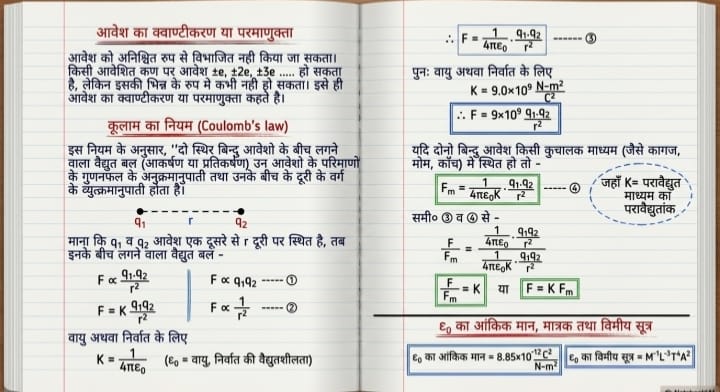 आवेश का क्वाण्टीकरण या परमाणुक्ता
आवेश को अनिश्चित रुप से विभाजित नही किया जा सकता।
किसी आवेशित कण पर आवेश ±e, ±2e, ±3e ..... हो सकता
है, लेकिन इसकी भिन्न के रुप मे कभी नही हो सकता। इसे ही
आवेश का क्वाण्टीकरण या परमाणुक्ता कहते है।
कूलाम का नियम (Coulomb's law)
इस नियम के अनुसार, "दो स्थिर बिन्दु आवेशो के बीच लगने
वाला वैद्युत बल (आकर्षण या प्रतिकर्षण) उन आवेशो के परिमाणो
के गुणनफल के अनुक्रमानुपाती तथा उनके बीच के दूरी के वर्ग
के व्युत्क्रमानुपाती होता है।
q₁ r q₂
माना कि q₁ व q₂ आवेश एक दूसरे से r दूरी पर स्थित है, तब
इनके बीच लगने वाला वैद्युत बल -
F ∝ q₁.q₂/r²
F = K q₁q₂/r²
F ∝ q₁q₂ ----- ①
F ∝ 1/r² ----- ②
वायु अथवा निर्वात के लिए
K = 1/4πε₀ (ε₀ = वायु, निर्वात की वैद्युतशीलता)
∴ F = 1/4πε₀ . q₁.q₂/r² ------ ③
पुनः वायु अथवा निर्वात के लिए
K = 9.0×10⁹ N-m²/C²
∴ F = 9×10⁹ q₁.q₂/r²
यदि दोनो बिन्दु आवेश किसी कुचालक माध्यम (जैसे कागज,
मोम, काँच) मे स्थित हो तो -
F_m = 1/4πε₀K . q₁.q₂/r² ----- ④
जहाँ K= परावैद्युत
माध्यम का
परावैद्युतांक
समी० ③ व ④ से -
F/F_m = (1/4πε₀ . q₁q₂/r²)/(1/4πε₀K . q₁q₂/r²)
F/F_m = K या F = K F_m
ε₀ का आंकिक मान, मात्रक तथा विमीय सूत्र
ε₀ का आंकिक मान = 8.85×10⁻¹² C²/N-m²
ε₀ का विमीय सूत्र = M⁻¹L⁻³T⁴A²